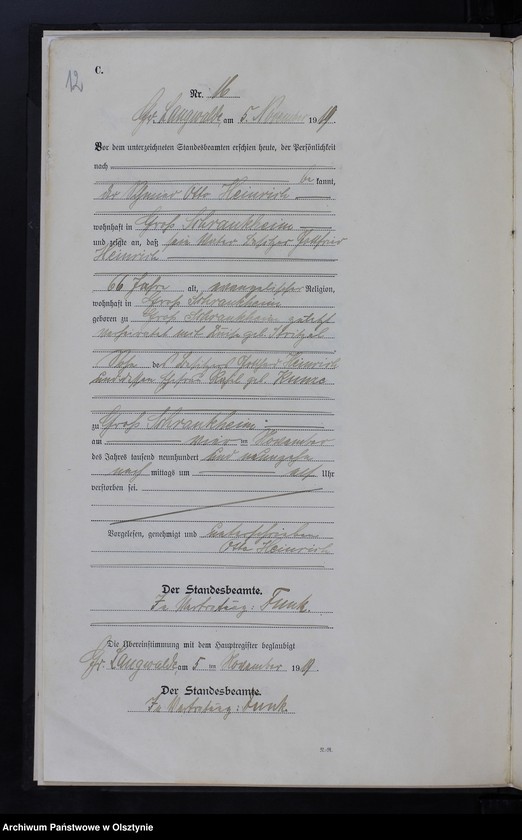 12
C.
Nr. 16
Gr. Langwalde, am 5. November 1919
Vor dem unterzeichneten Standesbeamten erschien heute, der Persönlichkeit
nach
be kannt,
der Otto Heinrich
wohnhaft in Groß Schrankheim
und zeigte an, daß sein Vater Besitzer Gottfried
Heinrich
66 Jahre alt, evangelischer Religion,
wohnhaft in Groß Schrankheim
geboren zu Groß Schrankheim zuletzt
verheiratet mit geb.
Sohn des Besitzers Gottfried Heinrich
und dessen Ehefrau geb.
zu Groß Schrankheim
am vier ten November
des Jahres tausend neunhundert und neunzehn
nach mittags um elf Uhr
verstorben sei.
Vorgelesen, genehmigt und unterschrieben
Otto Heinrich
Der Standesbeamte.
In Vertretung: Funk.
Die Übereinstimmung mit dem Hauptregister beglaubigt
Gr. Langwalde, am 5 ten November 1919.
Der Standesbeamte.
In Vertretung: Funk.
Archiwum Państwowe w Olsztynie